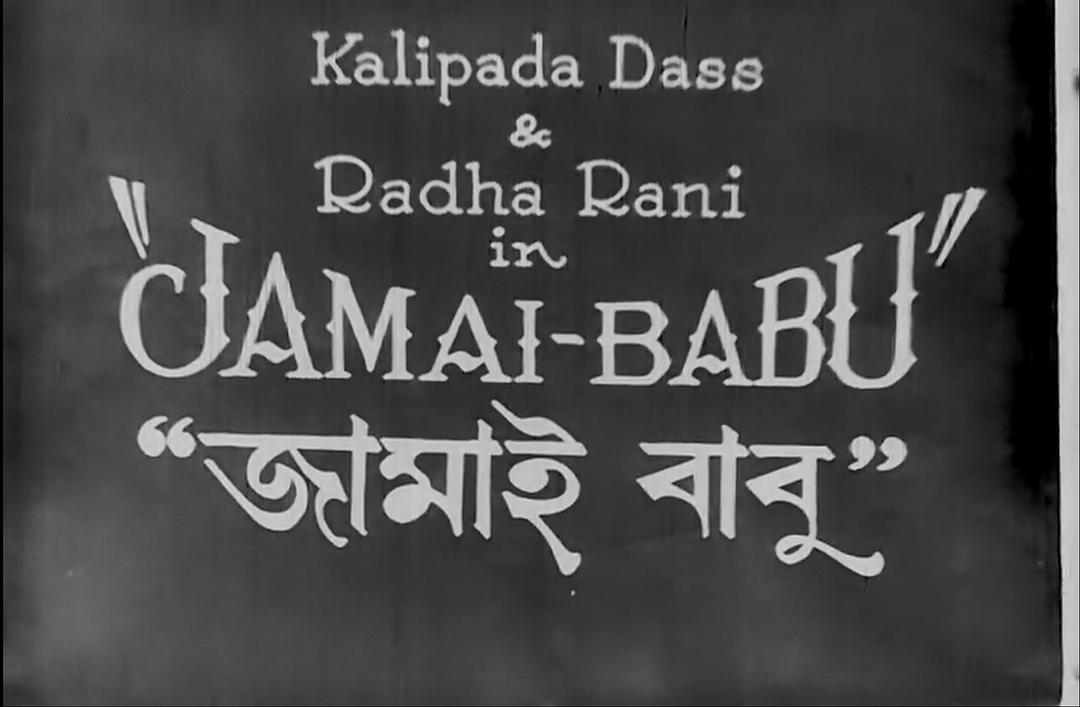 Kalipada Dass
&
Radha Rani
in
"JAMAI-BABU"
“জামাই বাবু”